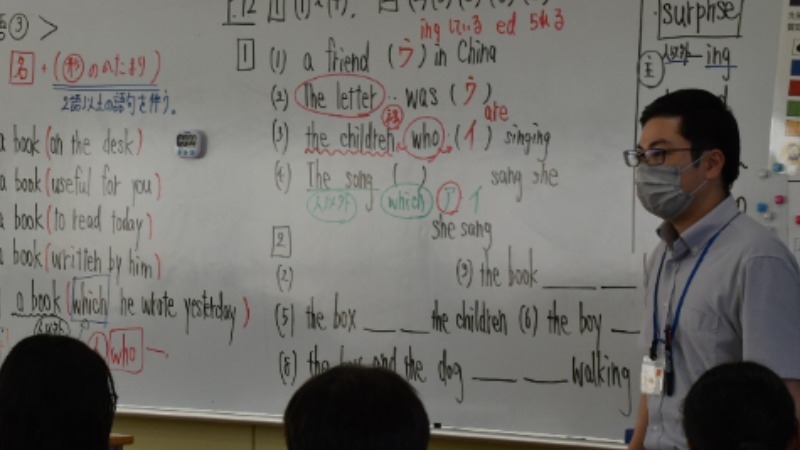 語③ >
名 + (のかたまり)
2語以上の語句を伴う。
a book (on the desk)
a book (useful for you)
a book (to read today)
a book (written by him)
a book (which he wrote yesterday)
who
P.12 1
ing している ed される
1 (1) a friend (ウ) in China
(2) The letter was (ウ)
are
(3) the children who (イ) singing
(4) The song ( ) sang she
人以外 which ア イ
she sang
2
(2) (3) the book ____ ____
(5) the box ____ ____ the children (6) the boy ____
(8) the boy and the dog ____ ____ walking
surprise
主 人以外 ing